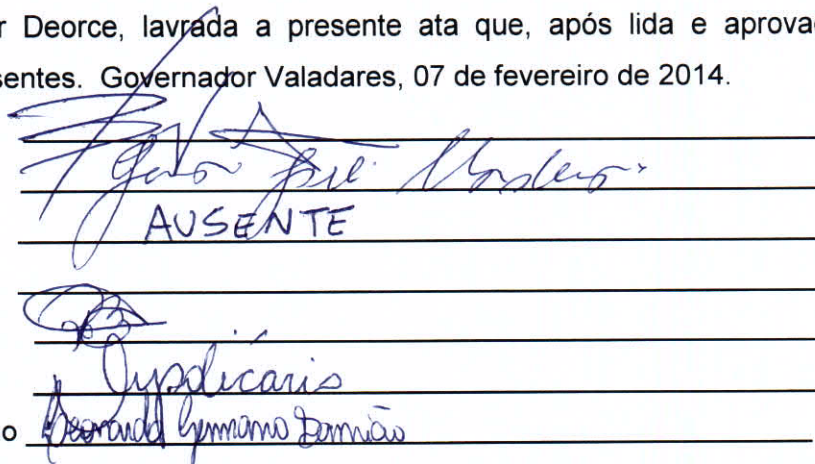 r Deorce, lavrada a presente ata que, após lida e aprovad
sentes. Governador Valadares, 07 de fevereiro de 2014.
José
AUSENTE
o Leonardo Germano Damião